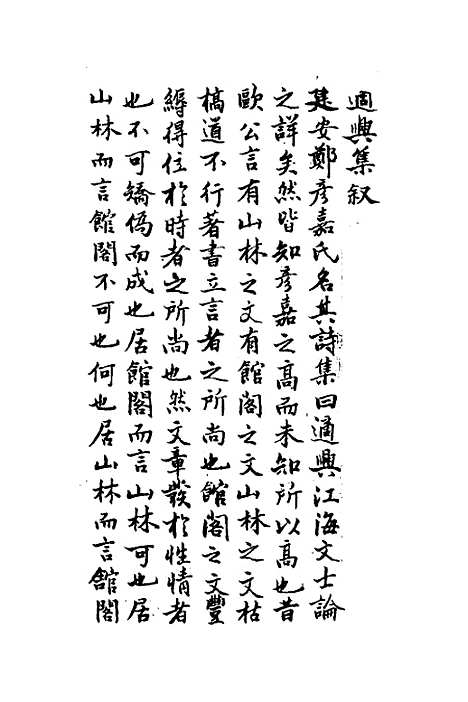 適興集叙
建安鄭彥嘉氏名其詩集曰適興江海文士論
之詳矣然皆知彥嘉之高而未知所以高也昔
歐公言有山林之文有館閣之文山林之文枯
槁道不行著書立言者之所尚也館閣之文豐
縟得位於時者之所尚也然文章發於性情者
也不可矯偽而成也居館閣而言山林可也居
山林而言館閣不可也何也居山林而言館閣